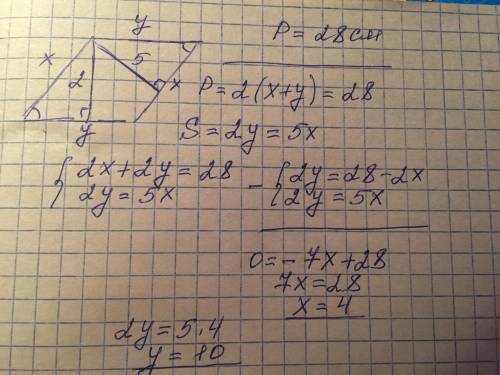 y
x
2
5
x
y
P = 28 см
P = 2(x+y) = 28
S = 2y = 5x
{ 2x + 2y = 28
2y = 5x
- { 2y = 28 - 2x
2y = 5x
0 = - 7x + 28
7x = 28
x = 4
2y = 5.4
y = 10